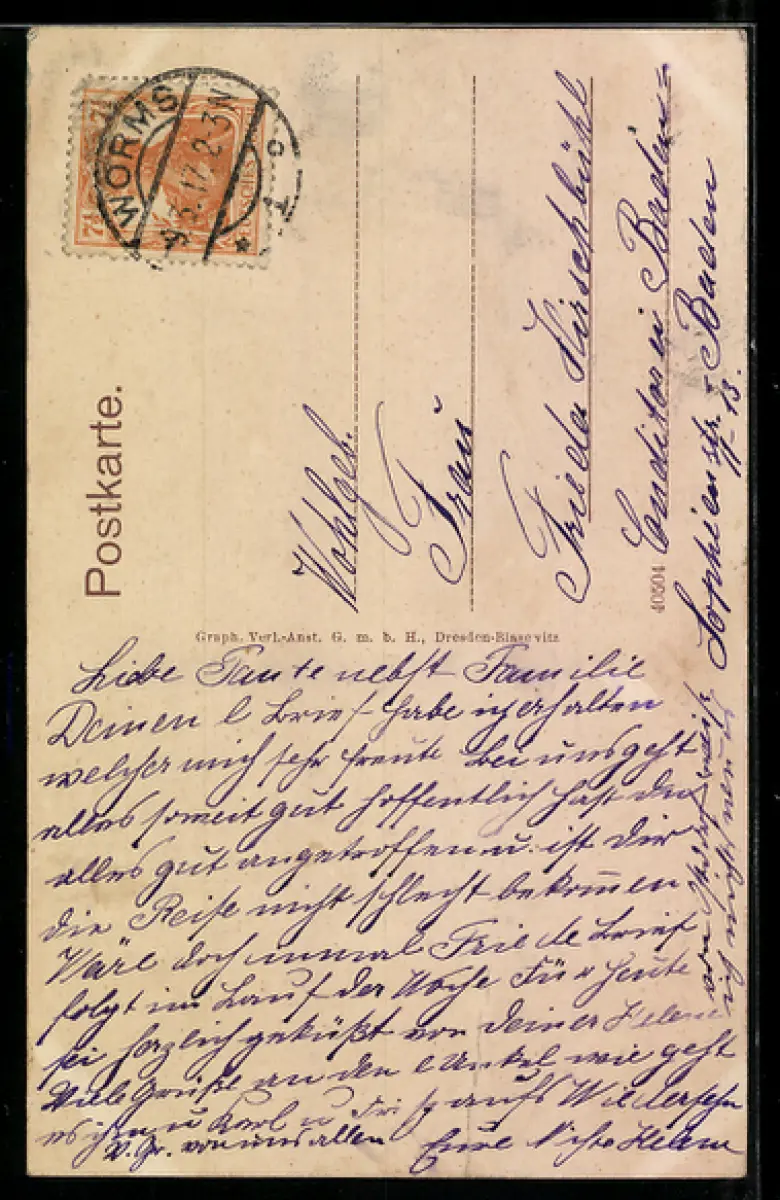 Postkarte.
WORMS
5.17.2-3N
7½
7½
Wohlgeb.
Frau
Frieda Hirschbühl
Conditorei Baden=
Baden
Sophienstr. 13.
40504
Graph. Verl.-Anst. G. m. b. H., Dresden-Blasewitz
Liebe Tante nebst Familie
Deinen l Brief habe ich erhalten
welcher mich sehr freute Bei uns geht
alles soweit gut hoffentlich hast du
alles gut angetroffen u. ist dir
die Reise nicht schlecht bekommen
Wäre doch einmal Friede Brief
folgt im Lauf der Woche Für heute
sei herzlich geküßt von Deiner Helene
Viele Grüße an den l Onkel wie geht
es ihm u Karl u aufs Wiedersehn
V. Gr. von uns allen Eure Nichte Helene
ich nichts neues